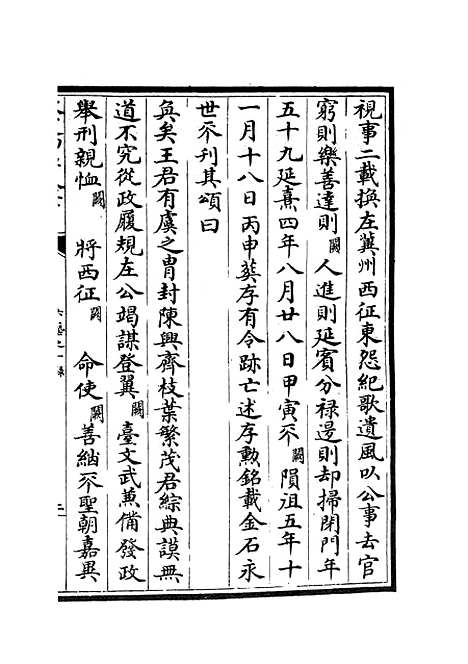 視事二載換左冀州西征東怨紀歌遺風以公事去官
窮則樂善達則闕人進則延賓分禄邊則却掃閉門年
五十九延熹四年八月廿八日甲寅不闕隕徂五年十
一月十八日丙申葬存有令跡亡述存勲銘載金石永
世不刊其頌曰
矣王君有虞之胄封陳興齊枝葉繁茂君綜典謨無
道不究從政履規左公竭謀登翼闕臺文武兼備發政
舉刑親恤闕將西征闕命使闕善緧不聖朝嘉異